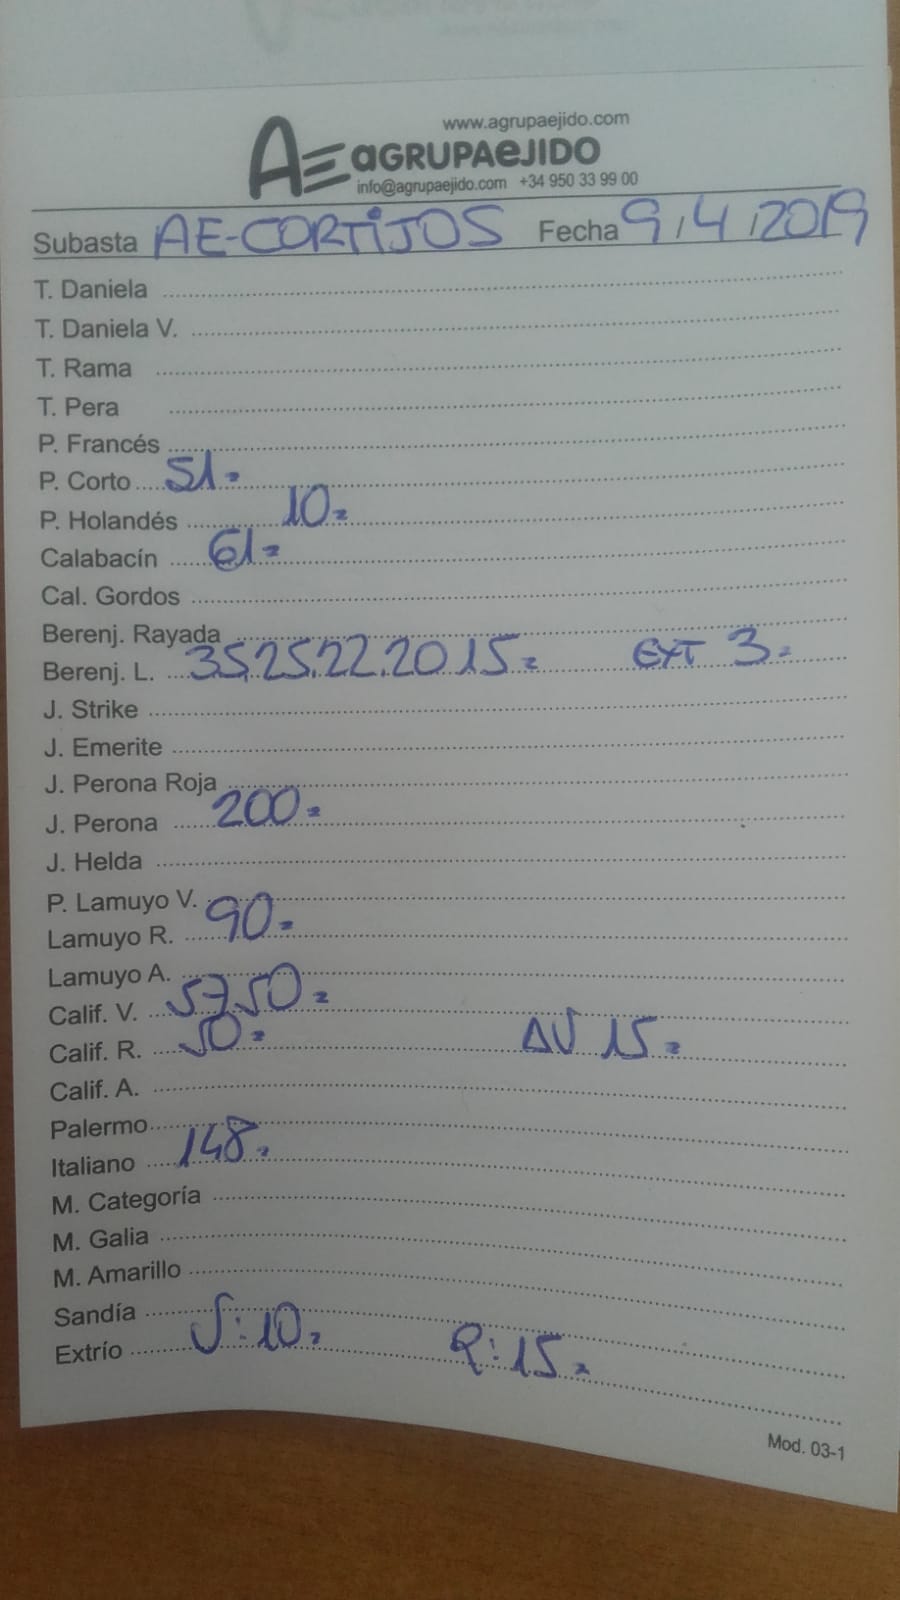 www.agrupaejido.com
AE aGRUPAeJIDO
info@agrupaejido.com +34 950 33 99 00
Subasta AE-CORTIJOS Fecha 9/4/2019
T. Daniela
T. Daniela V.
T. Rama
T. Pera
P. Francés
P. Corto 51=
P. Holandés 10=
Calabacín 61=
Cal. Gordos
Berenj. Rayada
Berenj. L. 35,25,22.20 15= EXT 3=
J. Strike
J. Emerite
J. Perona Roja
J. Perona 200=
J. Helda
P. Lamuyo V.
Lamuyo R. 90=
Lamuyo A.
Calif. V. 57,50=
Calif. R. 50= AV 15=
Calif. A.
Palermo
Italiano 148=
M. Categoría
M. Galia
M. Amarillo
Sandía
Extrío V:10= R:15=
Mod. 03-1